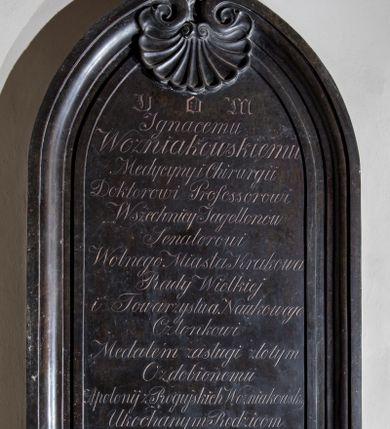 D O M
Ignacemu
Woźniakowskiemu
Medycyny i Chirurgii
Doktorowi Professorowi
Wszechnicy Jagellonow
Senatorowi
Wolnego Miasta Krakowa
Rady Wielkiej
i Towarzystwa Naukowego
Członkowi
Medalem zasługi złotym
Ozdobionemu
Apolonij z Rogujskich Woźniakowski
Ukochanym Rodzicom